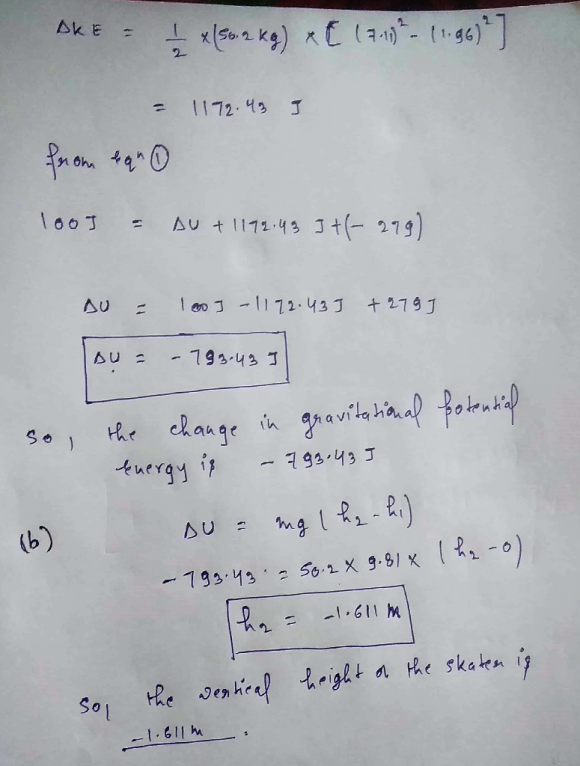 ΔKE = 1/2 x(50.2 kg) x [ (7.11)² - (1.96)² ]
= 1172.43 J
from eqⁿ ①
100J = ΔU + 1172.43 J +(- 279)
ΔU = 100J - 1172.43J + 279J
ΔU = - 793.43 J
So, the change in gravitational potential
energy is - 793.43 J
(b) ΔU = mg (h₂-h₁)
- 793.43 = 50.2 X 9.81 X (h₂ -0)
h₂ = -1.611 m
So, the vertical height of the skater is
-1.611m.